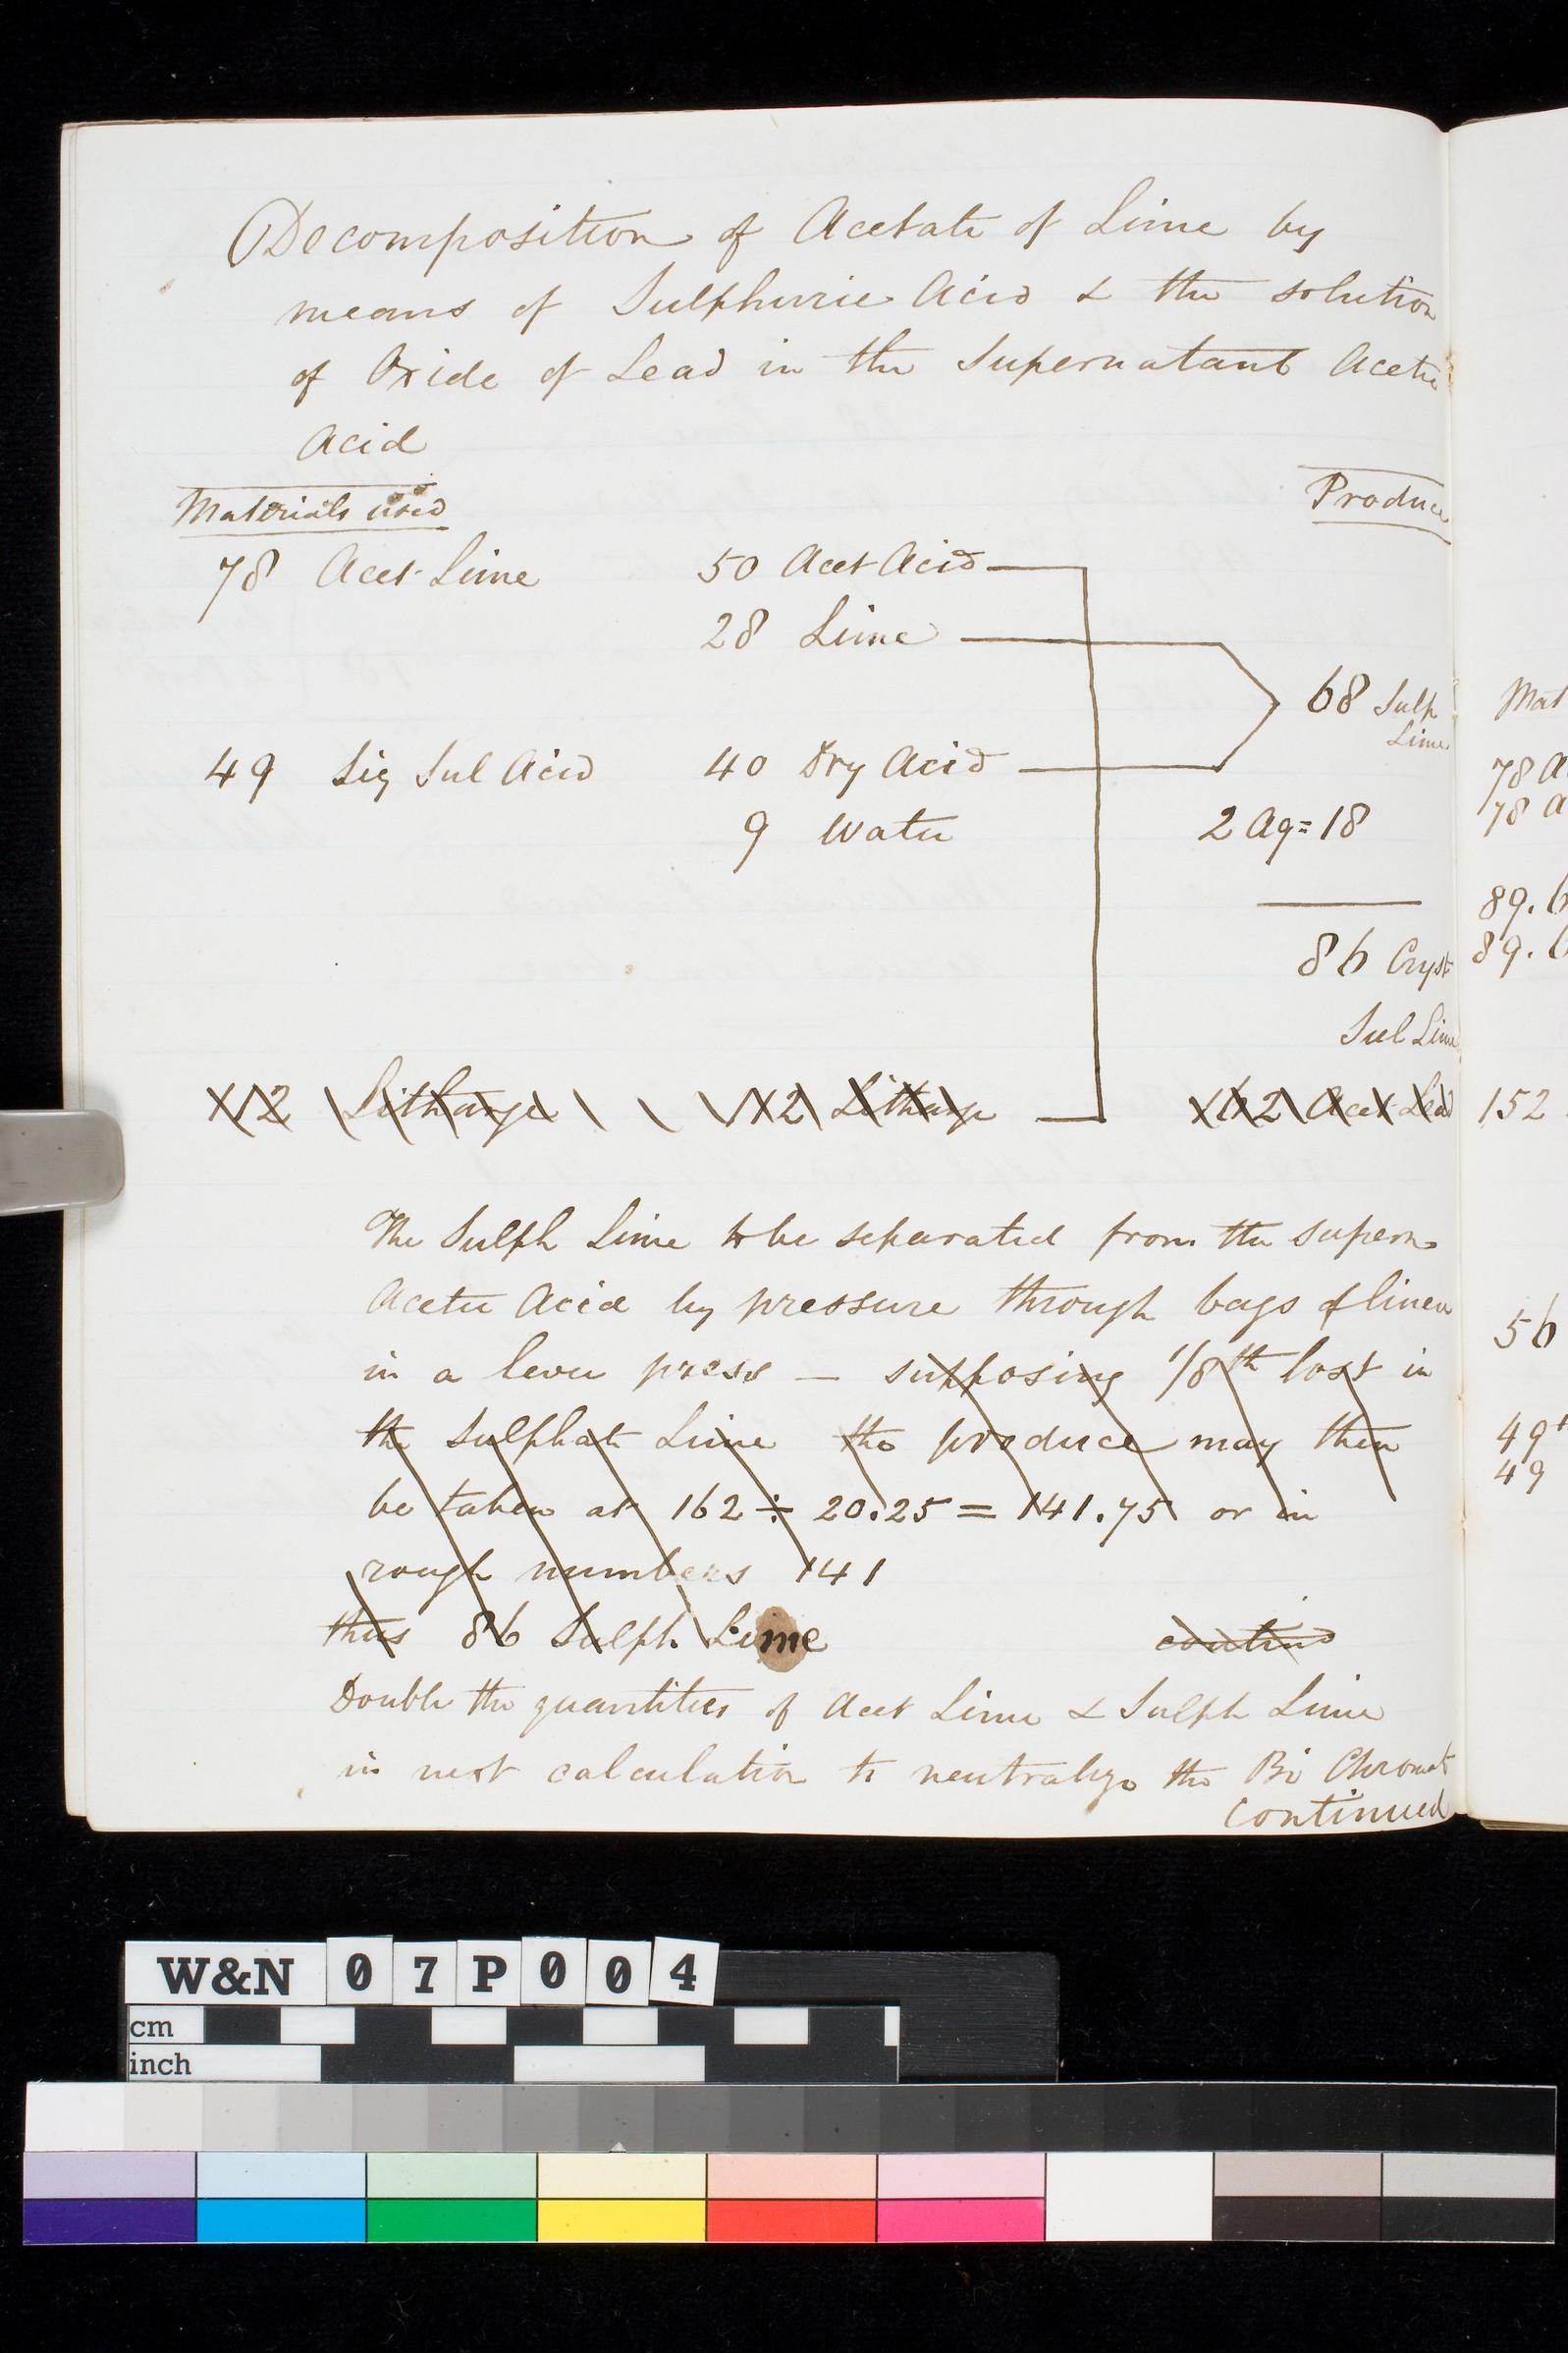 Decomposition of Acetate of Lime by
means of Sulphuric Acid & the solution
of Oxide of Lead in the Supernatant Acetic
Acid
Materials used
Produce
78 Acet Lime 50 Acet Acid
28 Lime
68 Sulp
Lime
49 Liq Sul Acid 40 Dry Acid
9 Water 2 Aq = 18
86 Cryst
Sul Lime
112 Litharge 112 Litharge 162 Acet Lead
The Sulph Lime to be separated from the supern
Acetic Acid by pressure through bags of linen
in a lever press — supposing 1/8th lost in
the Sulphate Lime the produce may then
be taken at 162 ÷ 20.25 = 141.75 or in
rough numbers 141
thus 86 Sulph. Lime contind
Double the quantities of Acet Lime & Sulph Lime
in next calculation to neutralize the Bi Chromat
continued
Mat
78 A
78 A
89.6
89.6
152
56
49
49
W&N 07P004
cm
inch